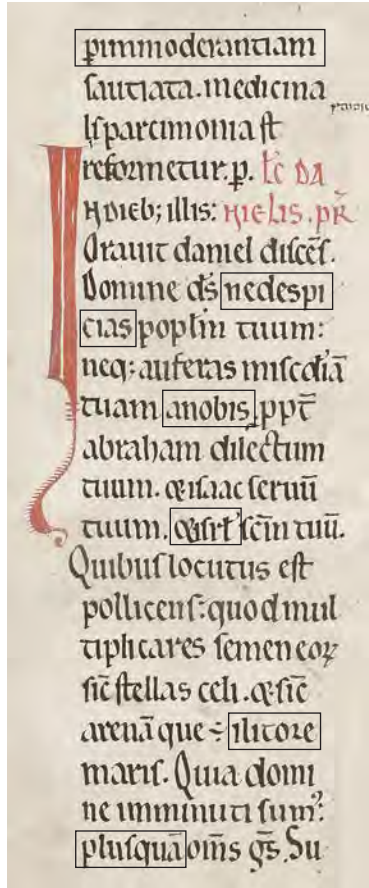 p̱immoderantiam
sautiata. medicina
lisparcimonia st̄
reformetur. p. Lc̄ DA
N diebus; illis: NIELIS. pR̄
Orauit daniel dicēs.
Domine ds̄ nedespi
cias poplm̄ tuum:
neq: auferas misc̄diā
tuam anobis. ppt̄
abraham dilectum
tuum. & isaac seruū
tuum. & isrl̄ sc̄m tuū.
Quibus locutus est
pollicens: quod mul
tiplicares semen eoꝝ
sic̄ stellas celi. & sic̄
arenā que ÷ ilitore
maris. Quia domi
ne imminuti sumꝰ:
plusquā om̄s gs̄. Su